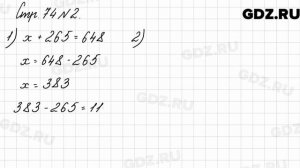 GDZ.RU
Стр. 74 N 2.
1) x + 265 = 648 2)
x = 648 - 265
x = 383
383 - 265 = 11
GDZ.RU